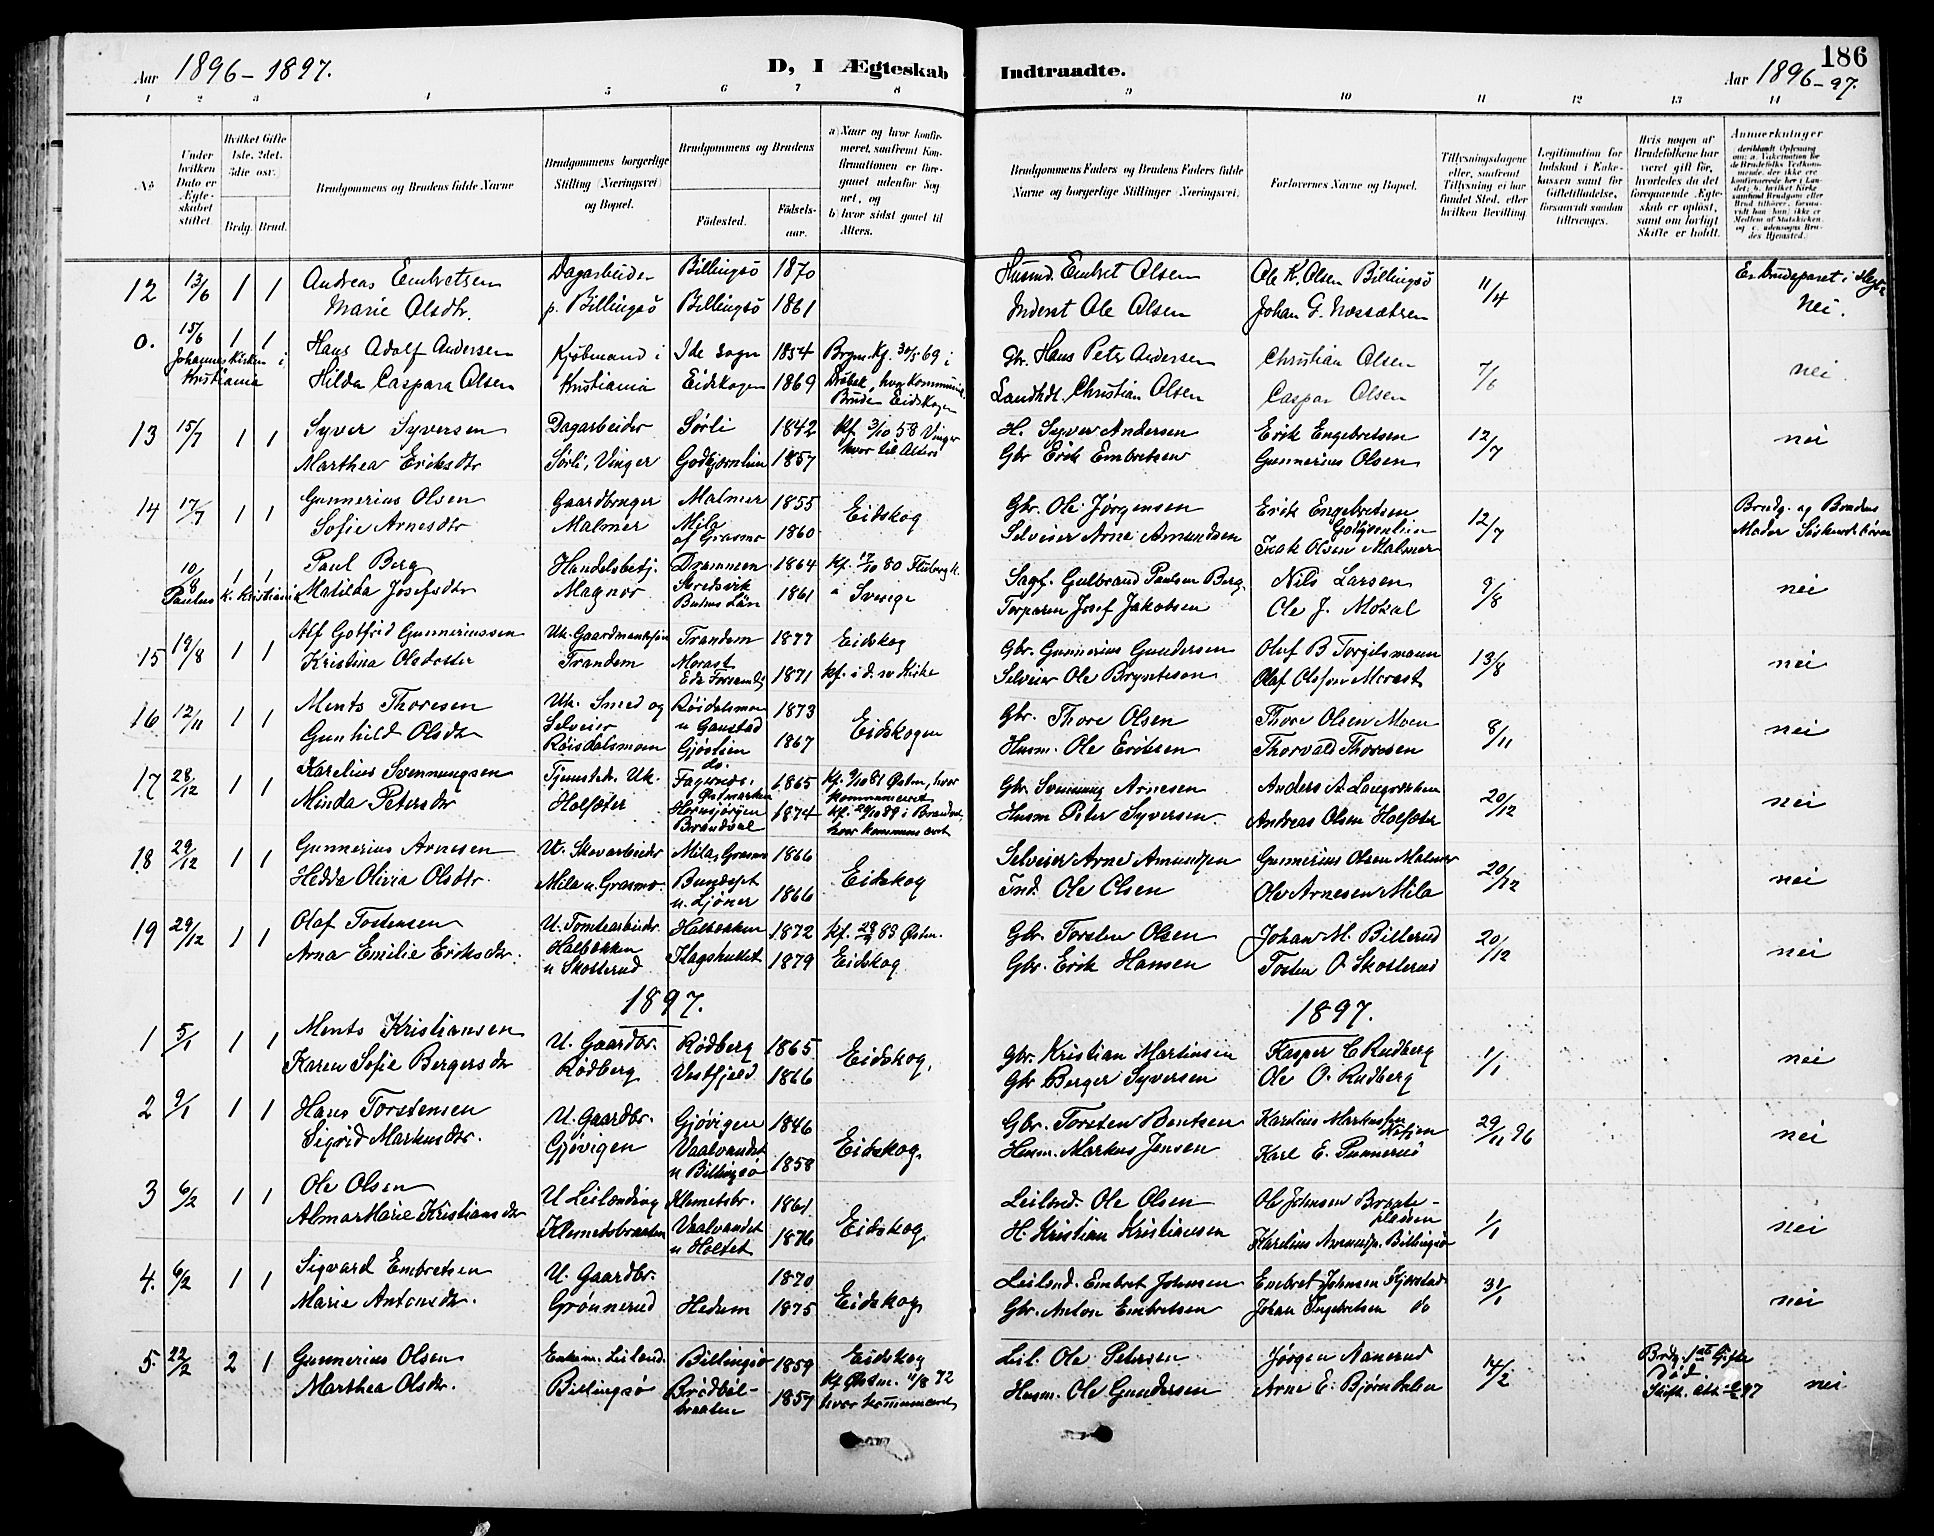 186
Aar 1896-1897.
D, I Ægteskab Indtraadte.
Aar 1896-97.
1 2 3 4 5 6 7 8 9 10 11 12 13 14
No
Under hvilken Dato er Ægteskabet stiftet.
Hvilket Gifte 1ste, 2det, 3die osv.
Brdg. Brud.
Brudgommens og Brudens fulde Navne
Brudgommens borgerlige Stilling (Næringsvei) og Bopæl.
Brudgommens og Brudens
Fødested. Fødselsaar.
a) Naar og hvor konfirmeret, saafremt Konfirmationen er foregaaet udenfor Sognet, og b) hvor sidst gaaet til Alters.
Brudgommens Faders og Brudens Faders fulde Navne og borgerlige Stillinger (Næringsvei).
Forlovernes Navne og Bopæl.
Tillysningsdagene eller, saafremt Tillysning ei har fundet Sted, efter hvilken Bevilling.
Legitimation for Indskud i Enkekassen samt for Giftetilladelse, forsaavidt saadan tiltrænges.
Hvis nogen af Brudefolkene har været gift før, hvorledes da det foregaaende Ægteskab er opløst, samt om lovligt Skifte er holdt.
Anmerkninger
12 13/6 1 1 Andreas Embretsen Dagarbeider Billingsö 1870 Husmd. Embret Olsen Ole K. Olsen Billingsö 11/4 Er brudeparet i Slegt
Marie Olsdtr. p. Billingsö Billingsö 1861 Inderst Ole Olsen Johan G. Mossætren Nei.
0. 15/6 1 1 Hans Adolf Andersen Kjøbmand i Ide sogn 1854 30/5 69 i Gbr. Hans Peter Andersen Christian Olsen 7/6 nei.
Johannes Kirken i Kristiania Hilda Caspara Olsen Kristiania Eidskogen 1869 Drøbak, hvor Kommunic. Brude. Eidskogen Landhdl. Christian Olsen Caspar Olsen
13 15/7 1 1 Syver Syversen Dagarbeider Sørli 1842 kf. 3/10 58 Vinger H. Syver Andersen Erik Engebretsen 12/7 nei
Marthea Eriksdtr Sørli, Vinger Godbjørnlien 1857 hvor til Alters Gbr Erik Embretsen Gunnerius Olsen
14 17/7 1 1 Gunnerius Olsen Gaardbruger Malmer 1855 Eidskog Gbr. Ole Jørgensen Erik Engebretsen Godbjørnlien 12/7 Brudg. og Brudens
Sofie Arnesdtr Malmer Mila af Grasmo 1860 Selveier Arne Amundsen Isak Olsen Malmer Moder Søskendebørn
10/8 1 1 Paul Berg Handelsbetj. Drammen 1864 kf. 17/10 80 Fluberg k. Sagf. Gulbrand Paulsen Berg Nils Larsen 9/8 nei
Paulus K. Kristiania Matilda Josefsdtr Magnor Skredsvik Bohus Län 1861 " Sverige Torparen Josef Jakobsen Ole J. Motal
15 19/8 1 1 Alf Gotfrid Gunneriussen Uk. Gaardmandssøn Trandem 1877 Eidskog Gbr. Gunnerius Gundersen Oluf B Torgilsmoen 13/8 nei
Kristina Olsdotter Trandem Morast Eda Forsaml. 1871 kf. i d. sv Kirke Selveier Ole Bryntesen Olaf Olsson Morast
16 12/11 1 1 Ments Thoresen Uk. Smed og Röidalsmoen u Gaustad 1873 Eidskogen Gbr. Thore Olsen Thore Olsen Moen 8/11 nei
Gunhild Olsdtr Selveier Røisdalsmoen Gjøslien do. 1867 Husm. Ole Eriksen Thorvald Thoresen
17 28/12 1 1 Karelius Svenningsen Tjenestedr. Uk. Fagernæs, Østmarken 1865 kf. 9/10 81 Østm., hvor kommuniceret Gbr Svenning Arnesen Anders A. 20/12 nei
Minda Petersdtr Holsæter Hornsjøvogen Brandval 1874 kf. 20/10 89 i Brandval, hvor kommuniceret Husm Peter Syversen Andreas Olsen Holsæter
18 29/12 1 1 Gunnerius Arnesen U. Skovarbeider Mila, Grasmo 1866 Eidskog Selveier Arne Amundsen Gunnerius Olsen Malmer 20/12 nei
Hedda Olivia Olsdtr. Mila u. Grasmo. u. Ljöner 1866 Ind. Ole Olsen Ole Arnesen Mila
19 29/12 1 1 Olaf Tostensen U. Tomtearbeider. Halbakken 1872 kf. 88 Østm. Gbr. Torsten Olsen Johan M. Billerud 20/12 nei
Arna Emilie Eriksdtr. Halbakken u Skotterud Flagstullet 1879 Eidskog Gbr. Erik Hansen Tosten O. Skotterud
1897. 1897.
1 5/1 1 1 Ments Kristiansen U. Gaardbr. Rödberg 1865 Eidskog. Gbr. Kristian Martinsen Kasper C Rudberg 1/1 nei
Karen Sofie Bergersdtr Rödberg Vestfjeld 1866 Gbr Berger Syversen Ole O. Rudberg
2 9/1 1 1 Hans Torstensen U. Gaardbr. Gjøvigen 1846 Eidskog. Gbr. Torsten Bentsen Karelius Markussen 29/11 96 nei
Sigrid Markusdtr. Gjøvigen Vaalvandet u Billingsø 1858 Husm. Markus Jensen Karl E. Punnerud
3 6/2 1 1 Ole Olsen U Leilænding Klemetsbr. 1861 Eidskog Leilænd. Ole Olsen Ole Johnsen Braateplassen 1/1 nei
Alma Marie Kristiansdtr Klemetsbraaten Vaalvandet u Holtet 1876 H. Kristian Kristiansen Karelius Amundsn. Billingsø
4. 6/2 1 1 Sigvard Embretsen U. Gaardbr. 1870 Eidskog Leilænd. Embret Johnsen Embret Johnsen Kjærstad 31/1 nei
Marie Antonsdtr. Grønnerud Hedum 1875 Gbr. Anton Embretsen Johan Ingebretsen do
5. 22/2 2 1 Gunnerius Olsen Enkem. Leilænd. Billingsø 1859 Eidskog Leil. Ole Petersen Jørgen Nanerud 14/2 Brdg. 1ste Gifte Død.
Marthea Olsdtr. Billingsø Brødbölbraaten 1857 kf Østm. 11/8 72 hvor kommuniceret Husm. Ole Gundersen Arne E. Bjørndalen Skift. att. 97 nei